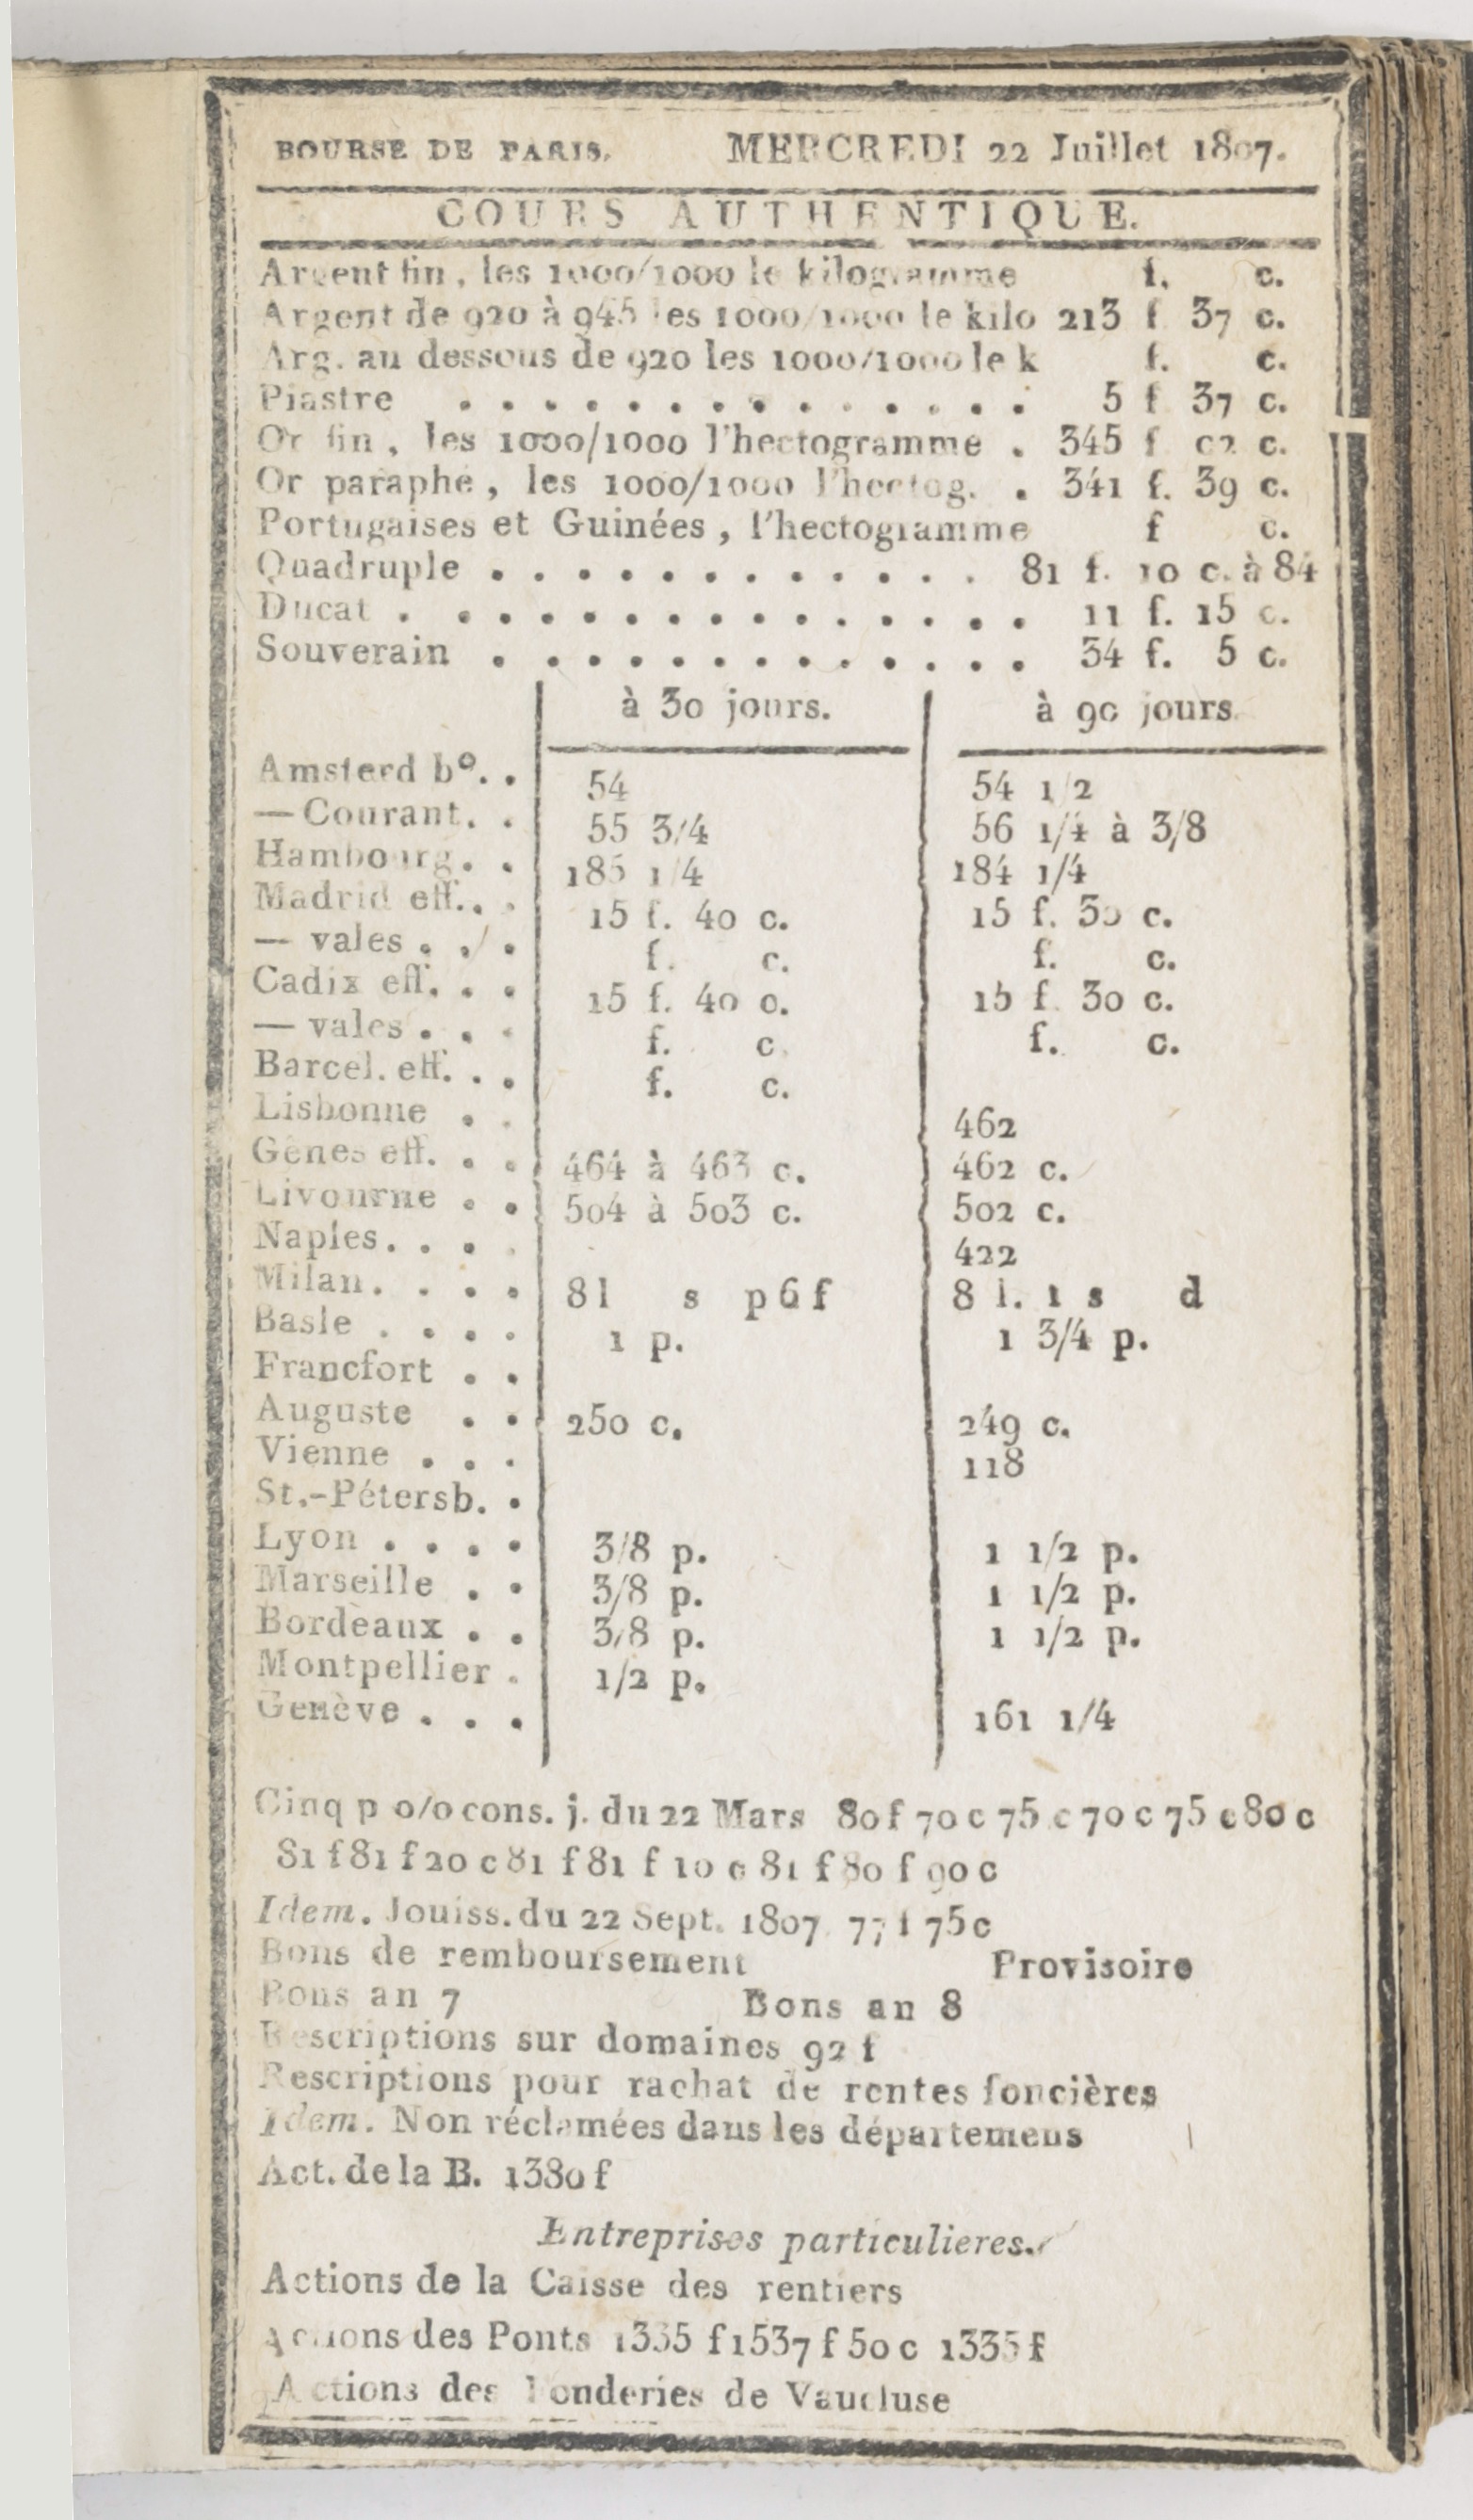 BOURSE DE PARIS. MERCREDI 22 Juillet 1807.
COURS AUTHENTIQUE.
Argent fin, les 1000/1000 le kilogramme f. c.
Argent de 920 à 945 les 1000/1000 le kilo 213 f 37 c.
Arg. au dessous de 920 les 1000/1000 le k f. c.
Piastre . . . . . . . . . . . . . . 5 f 37 c.
Or fin, les 1000/1000 l'hectogramme . 345 f 02 c.
Or paraphé, les 1000/1000 l'hectog. . 341 f. 39 c.
Portugaises et Guinées, l'hectogramme f c.
Quadruple . . . . . . . . . . . . 81 f. 10 c. à 84
Ducat . . . . . . . . . . . . . . . 11 f. 15 c.
Souverain . . . . . . . . . . . . . 34 f. 5 c.
à 30 jours. à 90 jours.
Amsterd bº. . 54 54 1/2
— Courant. . 55 3/4 56 1/4 à 3/8
Hambourg. . 185 1/4 184 1/4
Madrid eff. . . 15 f. 40 c. 15 f. 30 c.
— vales . . . f. c. f. c.
Cadix eff. . . 15 f. 40 c. 15 f 30 c.
— vales . . . f. c. f. c.
Barcel. eff. . . f. c.
Lisbonne . . 462
Gènes eff. . . 464 à 463 c. 462 c.
Livourne . . 504 à 503 c. 502 c.
Naples. . . . 422
Milan. . . . 8 l s p 6 f 8 l. 1 s d
Basle . . . . 1 p. 1 3/4 p.
Francfort . .
Auguste . . 250 c. 249 c.
Vienne . . . 118
St.-Pétersb. .
Lyon . . . . 3/8 p. 1 1/2 p.
Marseille . . 3/8 p. 1 1/2 p.
Bordeaux . . 3/8 p. 1 1/2 p.
Montpellier . 1/2 p.
Genève . . . 161 1/4
Cinq p 0/0 cons. j. du 22 Mars 80 f 70 c 75 c 70 c 75 c 80 c
81 f 81 f 20 c 81 f 81 f 10 c 81 f 80 f 90 c
Idem. Jouiss. du 22 Sept. 1807. 77 f 75 c
Bons de remboursement Provisoire
Bons an 7 Bons an 8
Rescriptions sur domaines 92 f
Rescriptions pour rachat de rentes foncières
Idem. Non réclamées dans les départemens
Act. de la B. 1380 f
Entreprises particulieres.
Actions de la Caisse des rentiers
Actions des Ponts 1335 f 1537 f 50 c 1335 f
Actions des Fonderies de Vaucluse